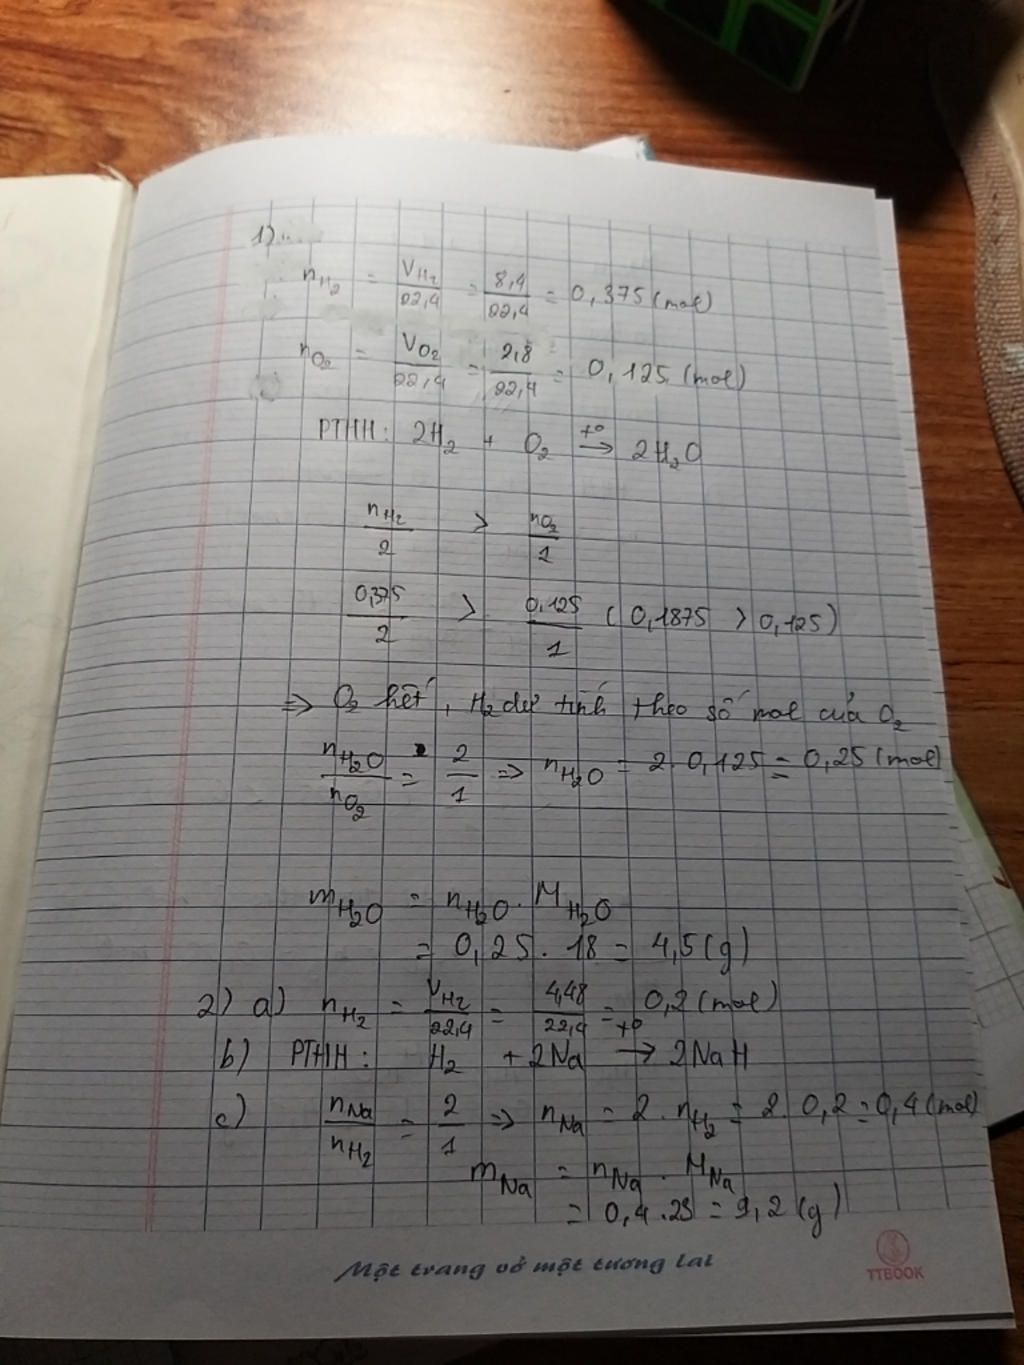 1)...
n_H₂ = V_H₂/22,4 = 8,4/22,4 = 0,375 (mol)
n_O₂ = V_O₂/22,4 = 2,8/22,4 = 0,125 (mol)
PTHH: 2H₂ + O₂ →(t°) 2H₂O
n_H₂/2 > n_O₂/1
0,375/2 > 0,125/1 (0,1875 > 0,125)
=> O₂ hết, H₂ dư tính theo số mol của O₂
n_H₂O/n_O₂ = 2/1 => n_H₂O = 2.0,125 = 0,25 (mol)
m_H₂O = n_H₂O . M_H₂O
= 0,25 . 18 = 4,5 (g)
2) a) n_H₂ = V_H₂/22,4 = 4,48/22,4 = 0,2 (mol)
b) PTHH: H₂ + 2Na →(t°) 2NaH
c) n_Na/n_H₂ = 2/1 => n_Na = 2 . n_H₂ = 2.0,2 = 0,4 (mol)
m_Na = n_Na . M_Na
= 0,4 . 23 = 9,2 (g)
Một trang vở một tương lai
TTBOOK